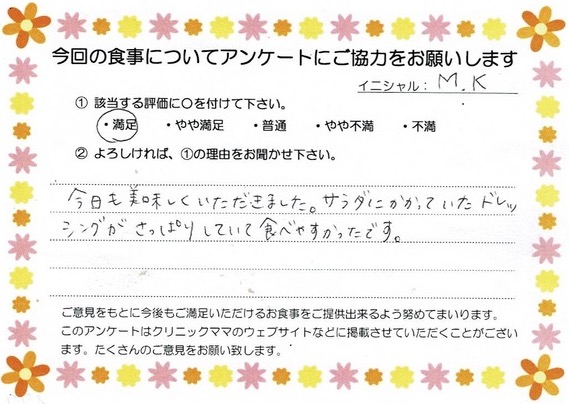 今回の食事についてアンケートにご協力をお願いします
イニシャル：M.K
① 該当する評価に〇を付けて下さい。
・満足 ・やや満足 ・普通 ・やや不満 ・不満
② よろしければ、①の理由をお聞かせ下さい。
今日も美味しくいただきました。サラダにかかっていたドレッ
シングがさっぱりしていて食べやすかったです。
ご意見をもとに今後もご満足いただけるお食事をご提供出来るよう努めてまいります。
このアンケートはクリニックママのウェブサイトなどに掲載させていただくことがござい
ます。たくさんのご意見をお願い致します。